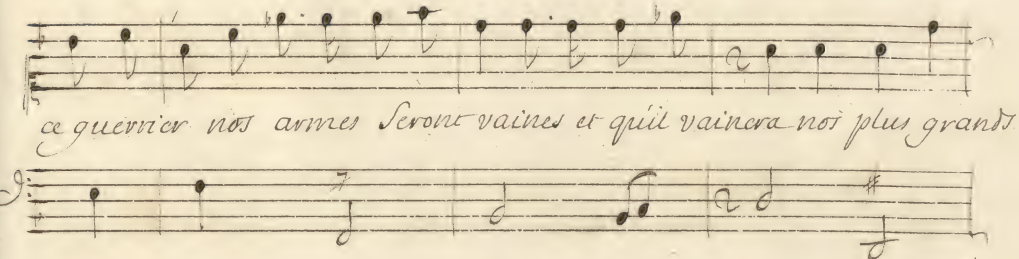 ce guerrier nos armes Seront vaines et qu'il vaincra nos plus grands